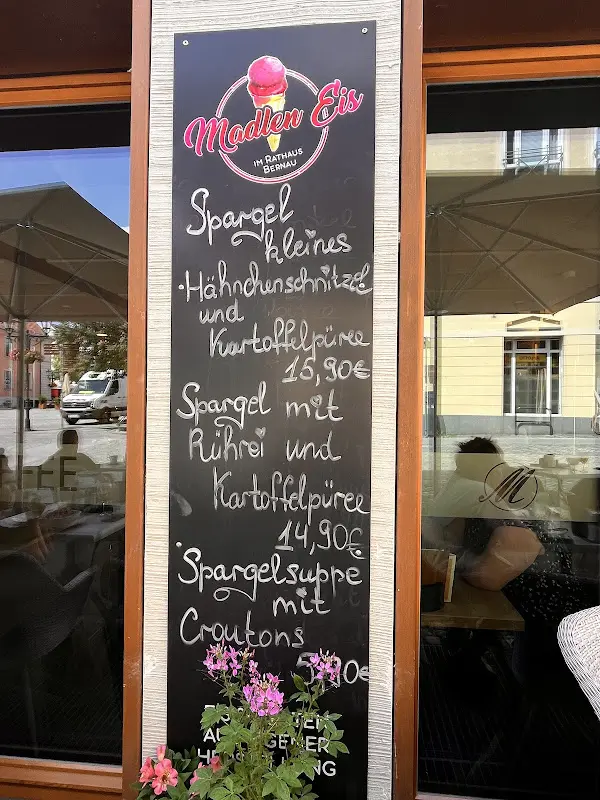 Madlen Eis
IM RATHAUS
BERNAU
Spargel
kleines
·Hähnchenschnitzel
und
Kartoffelpüree
15,90€
Spargel mit
Rührei und
Kartoffelpüree
14,90€
·Spargelsuppe
mit
Croutons
M